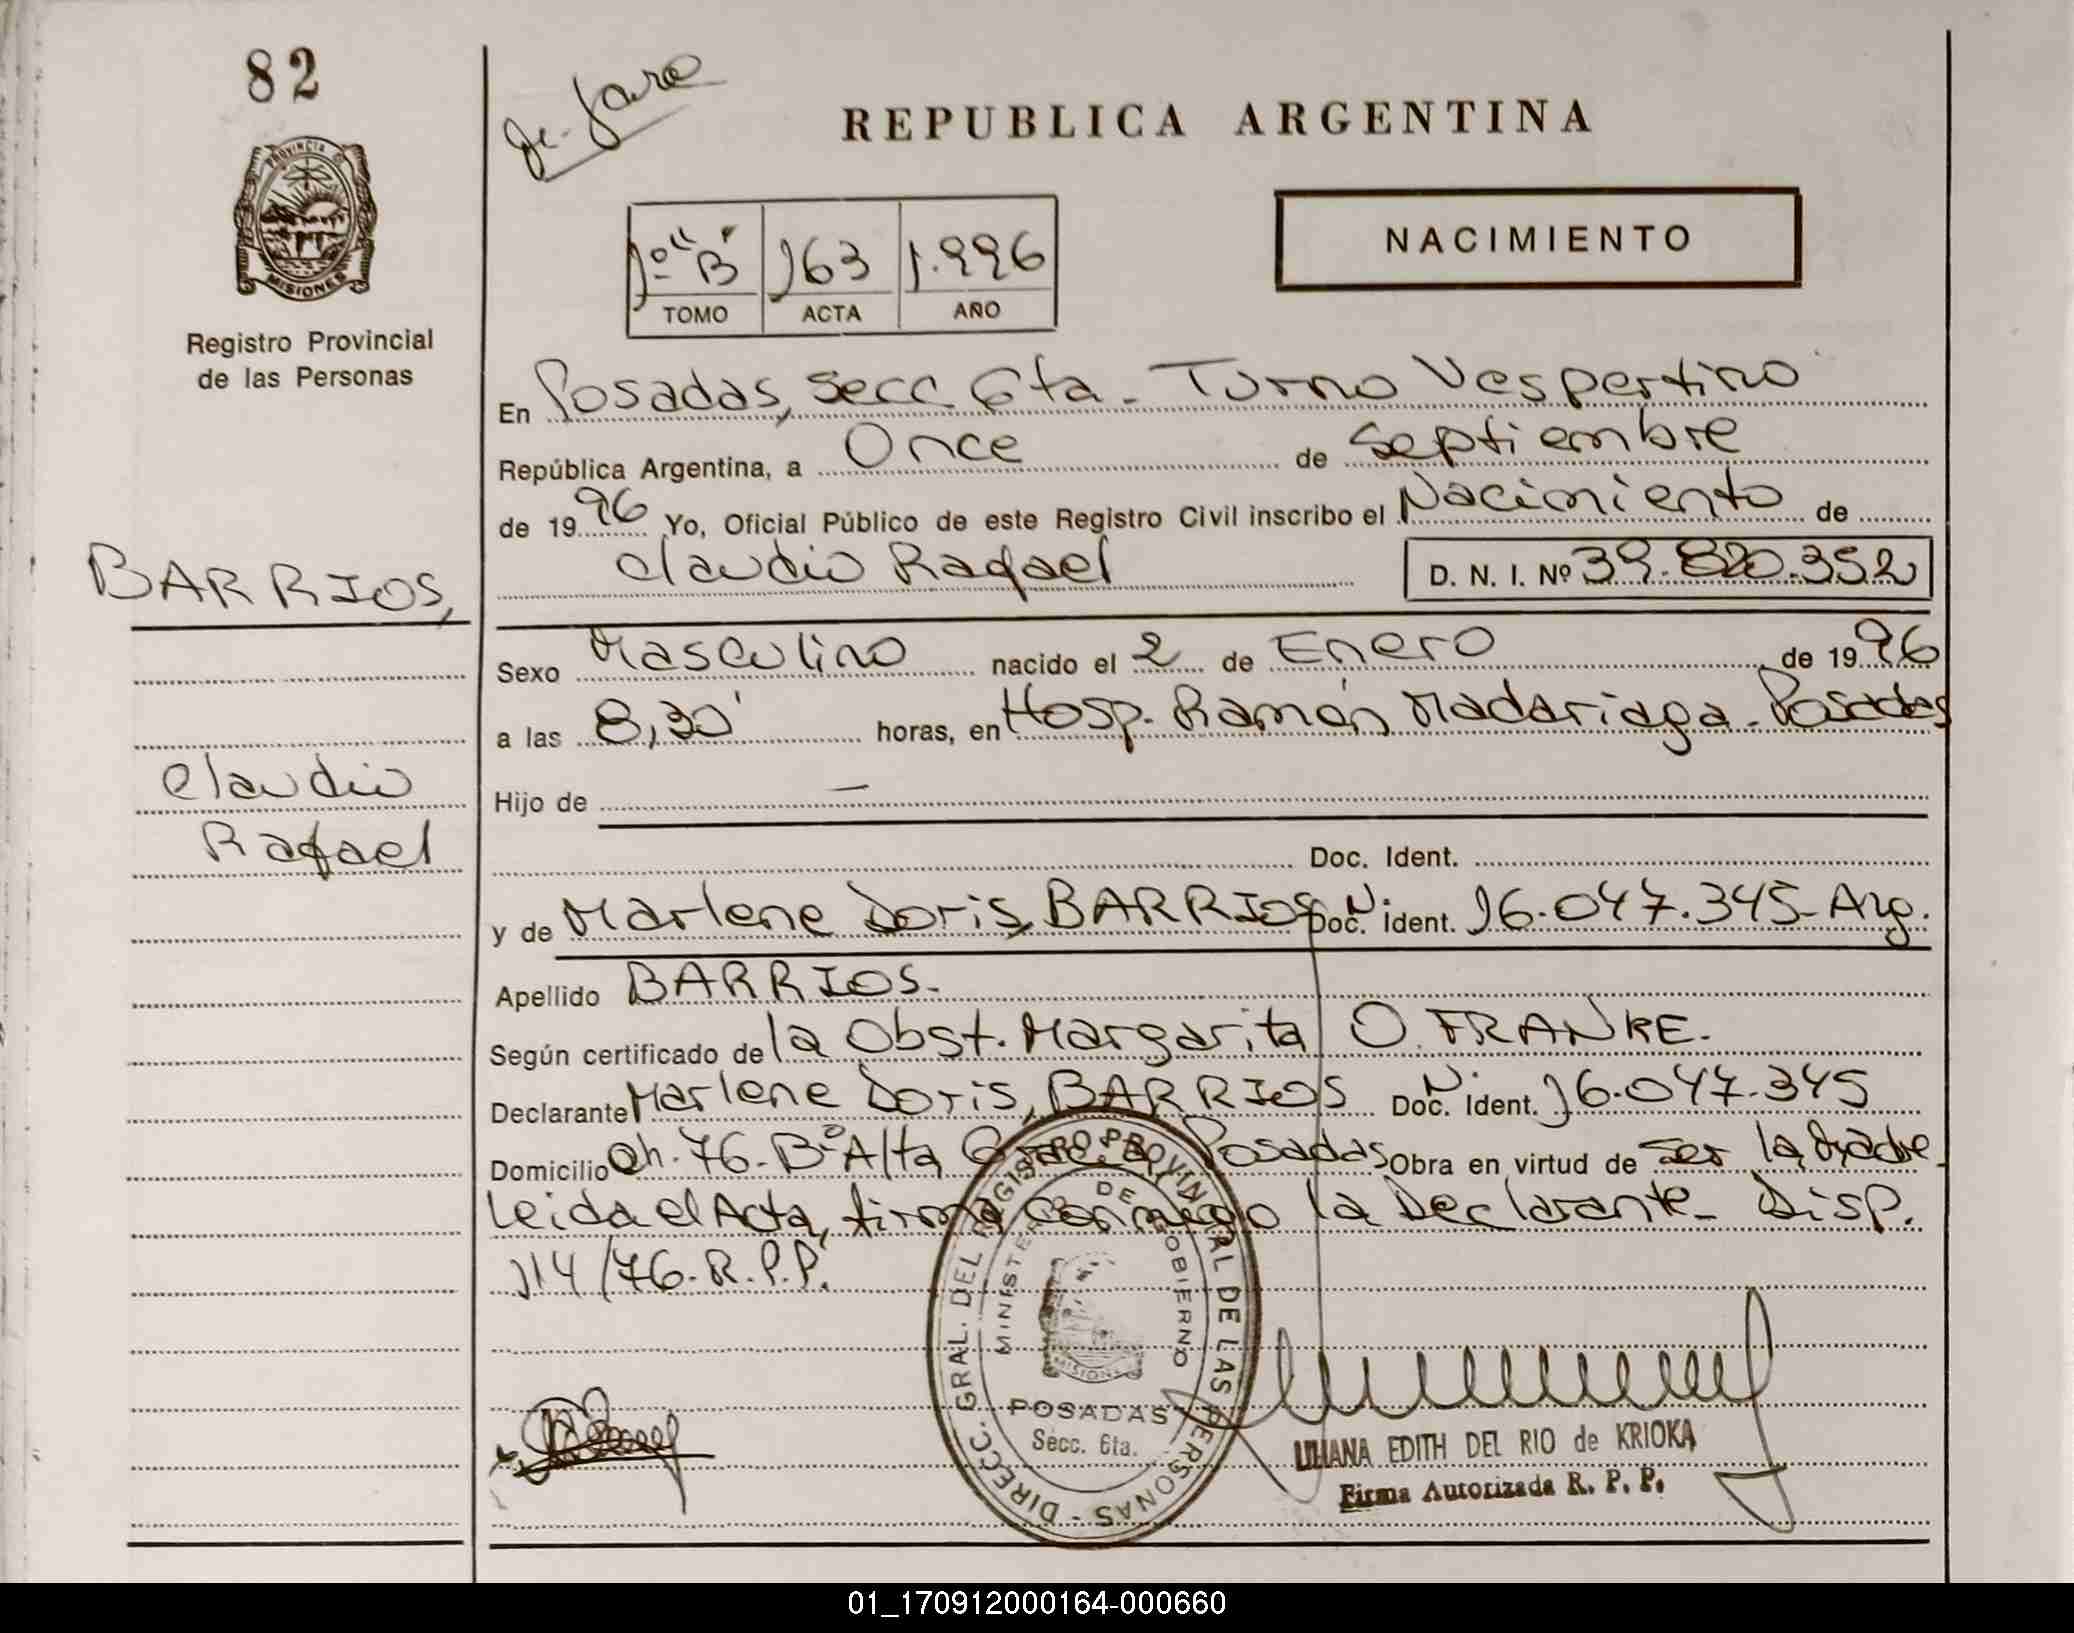 82
PROVINCIA D
MISIONES
Registro Provincial
de las Personas
REPUBLICA ARGENTINA
NACIMIENTO
1º "B" 163 1.996
TOMO ACTA AÑO
En Posadas, Secc 6ta - Turno Vespertino
República Argentina, a Once de Septiembre
de 1996 Yo, Oficial Público de este Registro Civil inscribo el Nacimiento de
Claudio Rafael D. N. I. Nº 39.820.352
BARRIOS,
Claudio
Rafael
Sexo Masculino nacido el 2 de Enero de 1996
a las 8,30' horas, en Hosp. Ramón Madariaga - Posadas
Hijo de —
Doc. Ident.
y de Marlene Doris, BARRIOS Doc. Ident. 16.047.345 - Arg.
Apellido BARRIOS.-
Según certificado de la Obst. Margarita O. FRANKE.-
Declarante Marlene Doris, BARRIOS Doc. Ident. 16.047.345
Domicilio Ch. 76 - Bº Alta Posadas Obra en virtud de ser la Madre -
Leida el Acta, firma conmigo la Declarante - Disp.
114/76 - R.P.P.
DIRECC. GRAL. DEL REGISTRO PROVINCIAL DE LAS PERSONAS -
MINISTERIO DE GOBIERNO
MISIONES
POSADAS
Secc. 6ta.
LILIANA EDITH DEL RIO de KRIOKA
Firma Autorizada R. P. P.
01_170912000164-000660